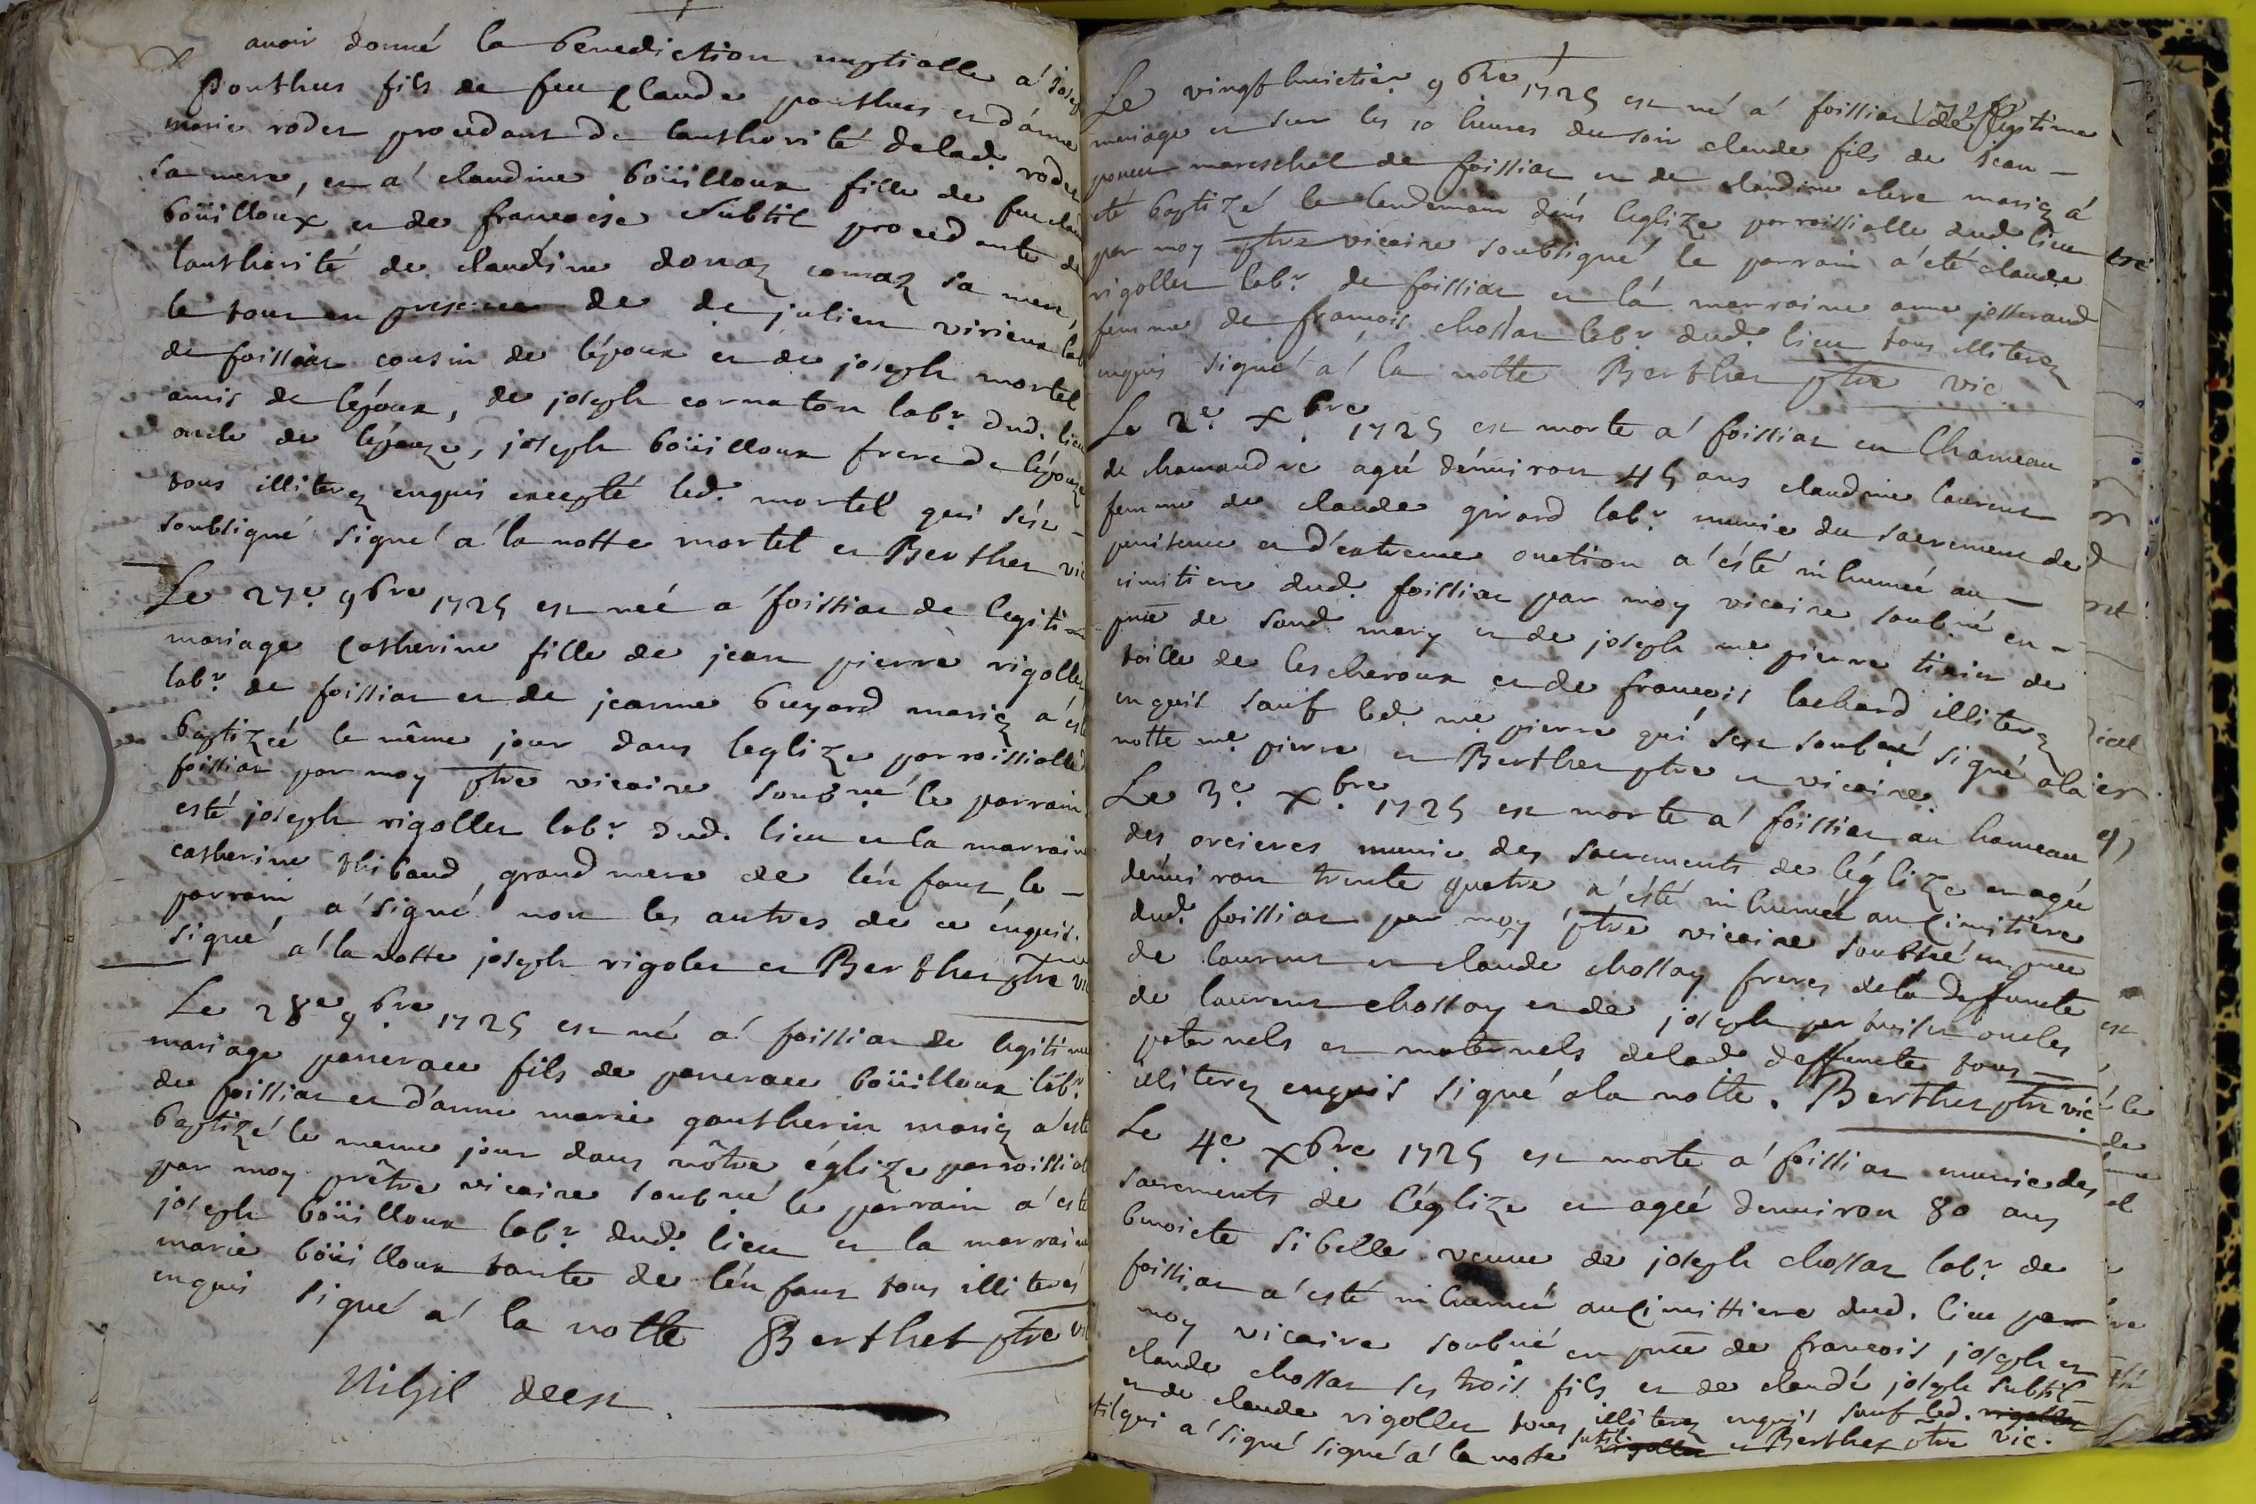 avoir donné la benediction nuptialle a' josep
Ponthus fils de feu Claude ponthus et d'anne
marie rodet procedant de lauthorité de lad. rodet
sa mere, et a' claudine boüilloux fille de feu clau
boüilloux et de francoise Subtil procedante de
lauthorité de claudine donaz sa mere,
le tout en presence de de julien virieux lab
de foissiat cousin de l'époux et de joseph mortel
amis de l'époux, de joseph cornaton labr. dud. lieu
oncle de l'épouze, joseph boüilloux frere de l'épouze
tous illiterez enquis excepté led. mortel qui s'est
soubsigné signé a' la notte mortel et Berthet vic
Le 27e. 9bre 1725 est neé a' foissiat de legiti
mariage Catherine fille de jean pierre rigollet
labr. de foissiat et de jeanne buyard mariez a' esté
baptizeé le même jour dans leglize parroissialle
foissiat par moy ptre vicaire soubné le parrain
esté joseph rigollet labr. dud. lieu et la marraine
catherine thibaud, grand mere de l'enfant, le
parrain a' signé non les autres de ce enquis.
signé a' la notte joseph rigolet et Berthet ptre vic
Le 28e 9bre 1725 est né a' foissiat de legitime
mariage pancrace fils de pancrace boüilloux labr.
de foissiat et d'anne marie gautherin mariez a' esté
baptizé le meme jour dans nôtre églize parroissial
par moy prêtre vicaire soubné le parrain a' esté
joseph boüilloux labr. dud. lieu et la marraine
marie boüilloux tante de l'enfant tous illiterés
enquis signé a' la notte Berthet ptre vi
Nihil deest.
Le vingt huictier. 9bre 1725 est né a' foissiat de legitime
mariage et sur les 10 heures du soir claude fils de jean
poncet mareschal de foissiat et de claudine clere mariez a'
eté baptizé le lendemain dans leglize parroissialle dud. lieu
par moy ptre vicaire soubsigné le parrain a' eté claude
rigollet labr. de foissiat et la marraine anne josserand
femme de françois chossat labr. dud. lieu tous illiterez
enquis signé a' la notte Berthet ptre vic
Le 2e. xbre 1725 est morte a' foissiat en lhameau
de chamandre ageé d'environ 45 ans claudine laurent
femme de claude girard labr. munie du sacrement de
penitence et d'extreme onction a' esté inhumeé au
cimitiere dud. foissiat par moy vicaire soubné en
pnce de sond. mary et de joseph me. pierre de
taille de lescheroux et de françois lachard illiterez
enquis sauf led. me. pierre qui s'est soubné signé a la
notte me. pierre et Berthet ptre et vicaire.
Le 3e. xbre 1725 est morte a' foissiat au hameau
des orcieres munie des sacrements de l'églize et ageé
d'environ trente quatre a' esté inhumeé au Cimitiere
dud. foissiat par moy ptre vicaire soubné en pnce
de laurent et claude chossat freres de la deffuncte
de laurent chossat et de joseph oncles
paternels et maternels de lad. deffuncte tous
illiterez enquis signé a la notte. Berthet ptre vic.
Le 4e. xbre 1725 est morte a' foissiat munie des
sacrements de l'églize et ageé d'environ 80 ans
benoicte sibelle veuve de joseph chossat labr. de
foissiat a' esté inhumeé au Cimittiere dud. lieu par
moy vicaire soubné en pnce de francois joseph et
claude chossat ses trois fils et de claude joseph subtil
et de claude rigollet tous illiterez enquis sauf led. rigollet
til qui a' signé signé a' la notte subtil rigollet et Berthet ptre vic.